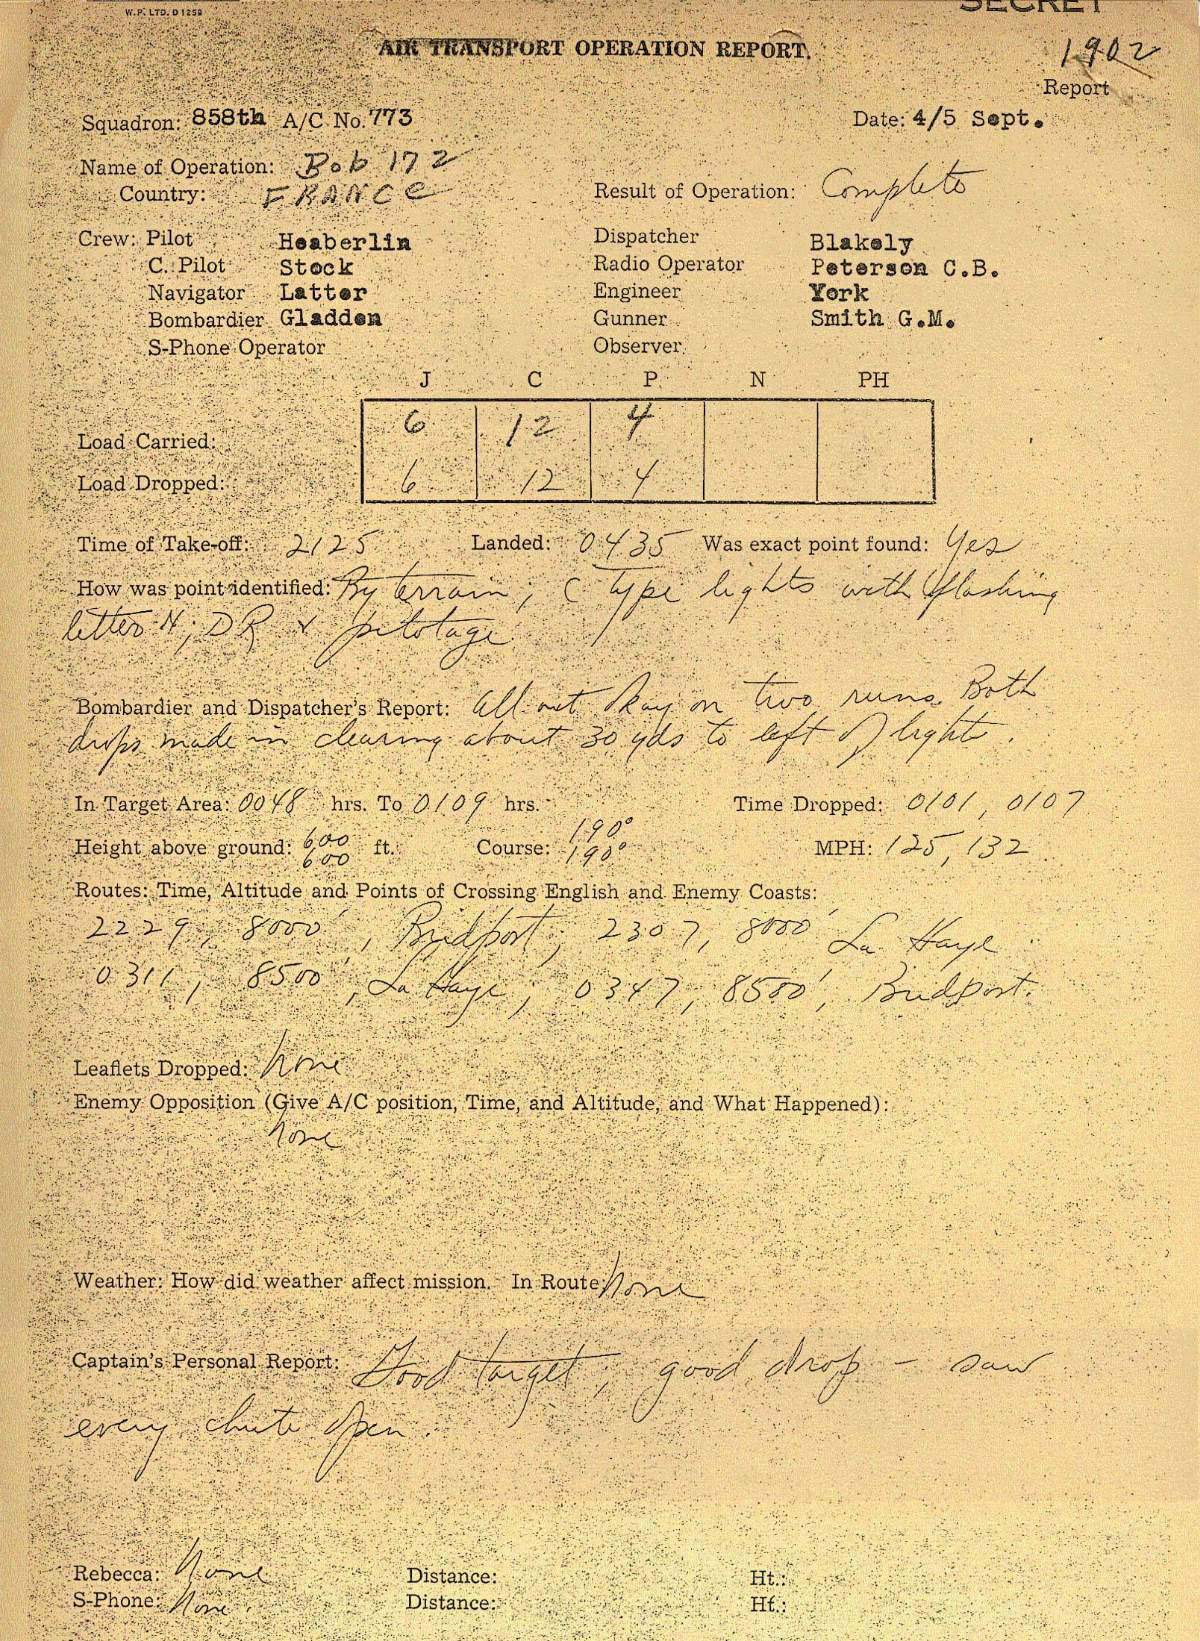 W.P. LTD. D1259
SECRET
AIR TRANSPORT OPERATION REPORT.
1902
Report
Squadron: 858th A/C No. 773 Date: 4/5 Sept.
Name of Operation: Bob 172
Country: FRANCE Result of Operation: Complete
Crew: Pilot Heaberlin Dispatcher Blakely
C. Pilot Stock Radio Operator Peterson C.B.
Navigator Latter Engineer York
Bombardier Gladden Gunner Smith G.M.
S-Phone Operator Observer
J C P N PH
Load Carried: 6 12 4
Load Dropped: 6 12 4
Time of Take-off: 2125 Landed: 0435 Was exact point found: Yes
How was point identified: By terrain; C type lights with flashing
letter N; DR & pilotage
Bombardier and Dispatcher's Report: All out okay on two runs. Both
drops made in clearing about 30 yds to left of lights.
In Target Area: 0048 hrs. To 0109 hrs. Time Dropped: 0101, 0107
Height above ground: 600 600 ft. Course: 190° 190° MPH: 125, 132
Routes: Time, Altitude and Points of Crossing English and Enemy Coasts:
2229, 8000', Bridport; 2307, 8000' La Haye
0311, 8500', La Haye; 0347, 8500', Bridport.
Leaflets Dropped: None
Enemy Opposition (Give A/C position, Time, and Altitude, and What Happened):
None
Weather: How did weather affect mission. In Route: None
Captain's Personal Report: Good target, good drop - saw
every chute open.
Rebecca: None Distance: Ht.:
S-Phone: None. Distance: Ht.: